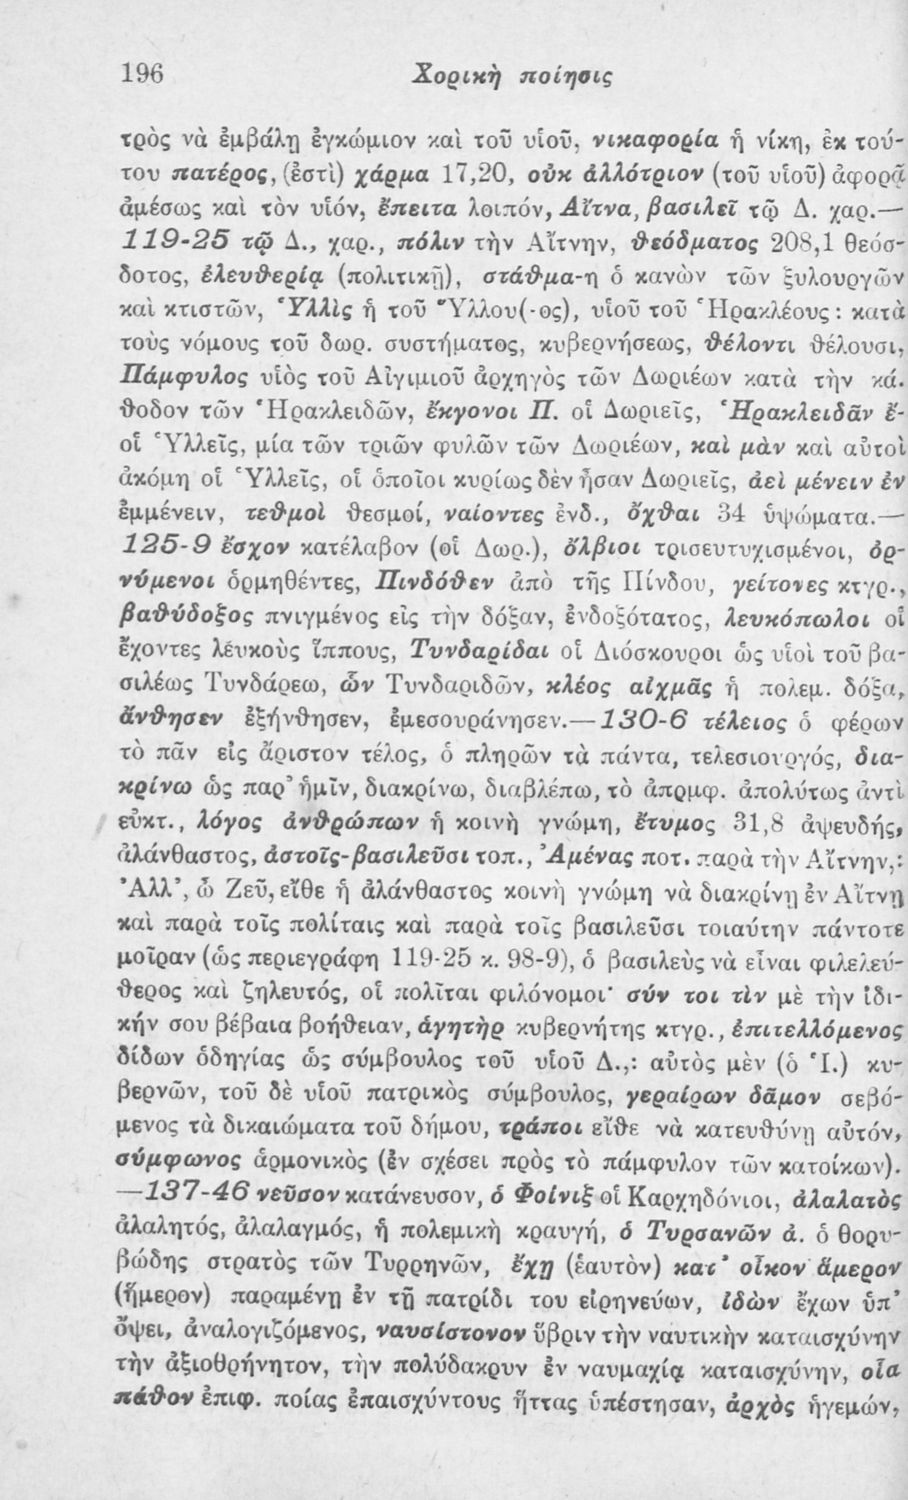 196 Χορικὴ ποίησις
τρὸς νὰ ἐμβάλῃ ἐγκώμιον καὶ τοῦ υἱοῦ, νικαφορία ἡ νίκη, ἐκ τού-
του πατέρος, (ἐστὶ) χάρμα 17,20, οὐκ ἀλλότριον (τοῦ υἱοῦ) ἀφορᾷ
ἀμέσως καὶ τὸν υἱόν, ἔπειτα λοιπόν, Αἴτνα, βασιλεῖ τῷ Δ. χαρ.—
119-25 τῷ Δ., χαρ., πόλιν τὴν Αἴτνην, θεόδματος 208,1 θεόσ-
δοτος, ἐλευθερίᾳ (πολιτικῇ), στάθμα-η ὁ κανὼν τῶν ξυλουργῶν
καὶ κτιστῶν, Ὑλλὶς ἡ τοῦ Ὕλλου(-ος), υἱοῦ τοῦ Ἡρακλέους: κατὰ
τοὺς νόμους τοῦ δωρ. συστήματος, κυβερνήσεως, θέλοντι θέλουσι,
Πάμφυλος υἱὸς τοῦ Αἰγιμιοῦ ἀρχηγὸς τῶν Δωριέων κατὰ τὴν κά.
θοδον τῶν Ἡρακλειδῶν, ἔκγονοι Π. οἱ Δωριεῖς, Ἡρακλειδᾶν ἔ-
οἱ Ὑλλεῖς, μία τῶν τριῶν φυλῶν τῶν Δωριέων, καὶ μὰν καὶ αὐτοὶ
ἀκόμη οἱ Ὑλλεῖς, οἱ ὁποῖοι κυρίως δὲν ἦσαν Δωριεῖς, ἀεὶ μένειν ἐν
ἐμμένειν, τεθμοὶ θεσμοί, ναίοντες ἐνδ., ὄχθαι 34 ὑψώματα.—
125-9 ἔσχον κατέλαβον (οἱ Δωρ.), ὄλβιοι τρισευτυχισμένοι, ὀρ-
νύμενοι ὁρμηθέντες, Πινδόθεν ἀπὸ τῆς Πίνδου, γείτονες κτγρ.,
βαθύδοξος πνιγμένος εἰς τὴν δόξαν, ἐνδοξότατος, λευκόπωλοι οἱ
ἔχοντες λευκοὺς ἵππους, Τυνδαρίδαι οἱ Διόσκουροι ὡς υἱοὶ τοῦ βα-
σιλέως Τυνδάρεω, ὧν Τυνδαριδῶν, κλέος αἰχμᾶς ἡ πολεμ. δόξα,
ἄνθησεν ἐξήνθησεν, ἐμεσουράνησεν.—130-6 τέλειος ὁ φέρων
τὸ πᾶν εἰς ἄριστον τέλος, ὁ πληρῶν τὰ πάντα, τελεσιουργός, δια-
κρίνω ὡς παρ' ἡμῖν, διακρίνω, διαβλέπω, τὸ ἀπρμφ. ἀπολύτως ἀντὶ
εὐκτ., λόγος ἀνθρώπων ἡ κοινὴ γνώμη, ἔτυμος 31,8 ἀψευδής,
ἀλάνθαστος, ἀστοῖς-βασιλεῦσι τοπ., Ἀμένας ποτ. παρὰ τὴν Αἴτνην,:
Ἀλλ', ὦ Ζεῦ, εἴθε ἡ ἀλάνθαστος κοινὴ γνώμη νὰ διακρίνῃ ἐν Αἴτνῃ
καὶ παρὰ τοῖς πολίταις καὶ παρὰ τοῖς βασιλεῦσι τοιαύτην πάντοτε
μοῖραν (ὡς περιεγράφη 119-25 κ. 98-9), ὁ βασιλεὺς νὰ εἶναι φιλελεύ-
θερος καὶ ζηλευτός, οἱ πολῖται φιλόνομοι· σύν τοι τὶν μὲ τὴν ἰδι-
κήν σου βέβαια βοήθειαν, ἁγητὴρ κυβερνήτης κτγρ., ἐπιτελλόμενος
δίδων ὁδηγίας ὡς σύμβουλος τοῦ υἱοῦ Δ.,: αὐτὸς μὲν (ὁ Ἱ.) κυ-
βερνῶν, τοῦ δὲ υἱοῦ πατρικὸς σύμβουλος, γεραίρων δᾶμον σεβό-
μενος τὰ δικαιώματα τοῦ δήμου, τράποι εἴθε νὰ κατευθύνῃ αὐτόν,
σύμφωνος ἁρμονικὸς (ἐν σχέσει πρὸς τὸ πάμφυλον τῶν κατοίκων).
—137-46 νεῦσον κατάνευσον, ὁ Φοίνιξ οἱ Καρχηδόνιοι, ἀλαλατὸς
ἀλαλητός, ἀλαλαγμός, ἡ πολεμικὴ κραυγή, ὁ Τυρσανῶν ἀ. ὁ θορυ-
βώδης στρατὸς τῶν Τυρρηνῶν, ἔχῃ (ἑαυτὸν) κατ' οἶκον ἅμερον
(ἥμερον) παραμένῃ ἐν τῇ πατρίδι του εἰρηνεύων, ἰδὼν ἔχων ὑπ'
ὄψει, ἀναλογιζόμενος, ναυσίστονον ὕβριν τὴν ναυτικὴν καταισχύνην
τὴν ἀξιοθρήνητον, τὴν πολύδακρυν ἐν ναυμαχίᾳ καταισχύνην, οἷα
πάθον ἐπιφ. ποίας ἐπαισχύντους ἥττας ὑπέστησαν, ἀρχὸς ἡγεμών,